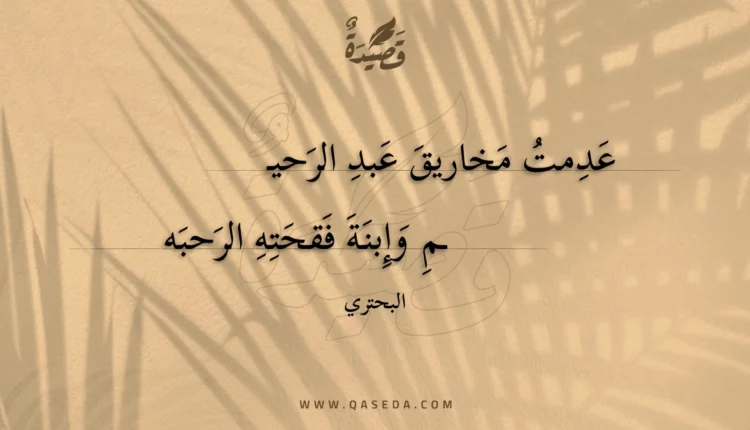 قَصِيدَةٌ
عَدِمتُ مَخاريقَ عَبدِ الرَحيـ
ـمِ وَإِبنَةَ فَقحَتِهِ الرَحبَه
البحتري
WWW.QASEDA.COM